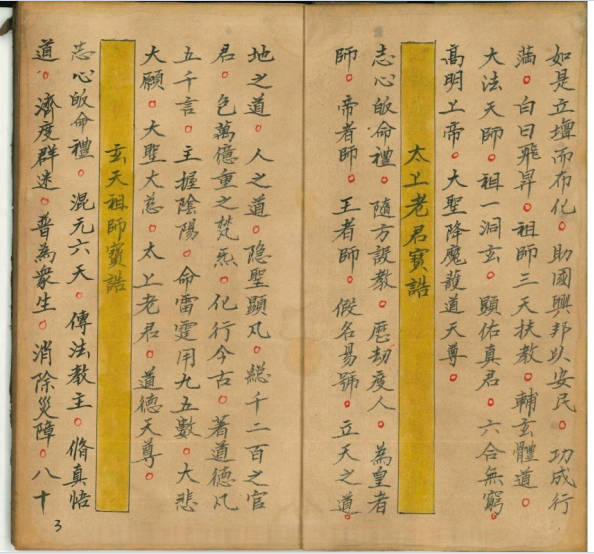 如是立壇而布化。助國興邦以安民。功成行
滿。白日飛昇。祖師三天扶教。輔玄體道。
大法天師。祖一洞玄。顯佑真君。六合無窮。
高明上帝。大聖降魔護道天尊。
太上老君寶誥
志心皈命禮。隨方設教。歷劫度人。為皇者
師。帝者師。王者師。假名易號。立天之道。
地之道。人之道。隐聖顯凡。總千二百之官
君。包萬億重之梵炁。化行今古。著道德凡
五千言。主握陰陽。命雷霆用九五數。大悲
大願。大聖大慈。太上老君。道德天尊。
玄天祖師寶誥
志心皈命禮。混元六天。傳法教主。脩真悟
道。濟度群迷。普為衆生。消除災障。八十
3